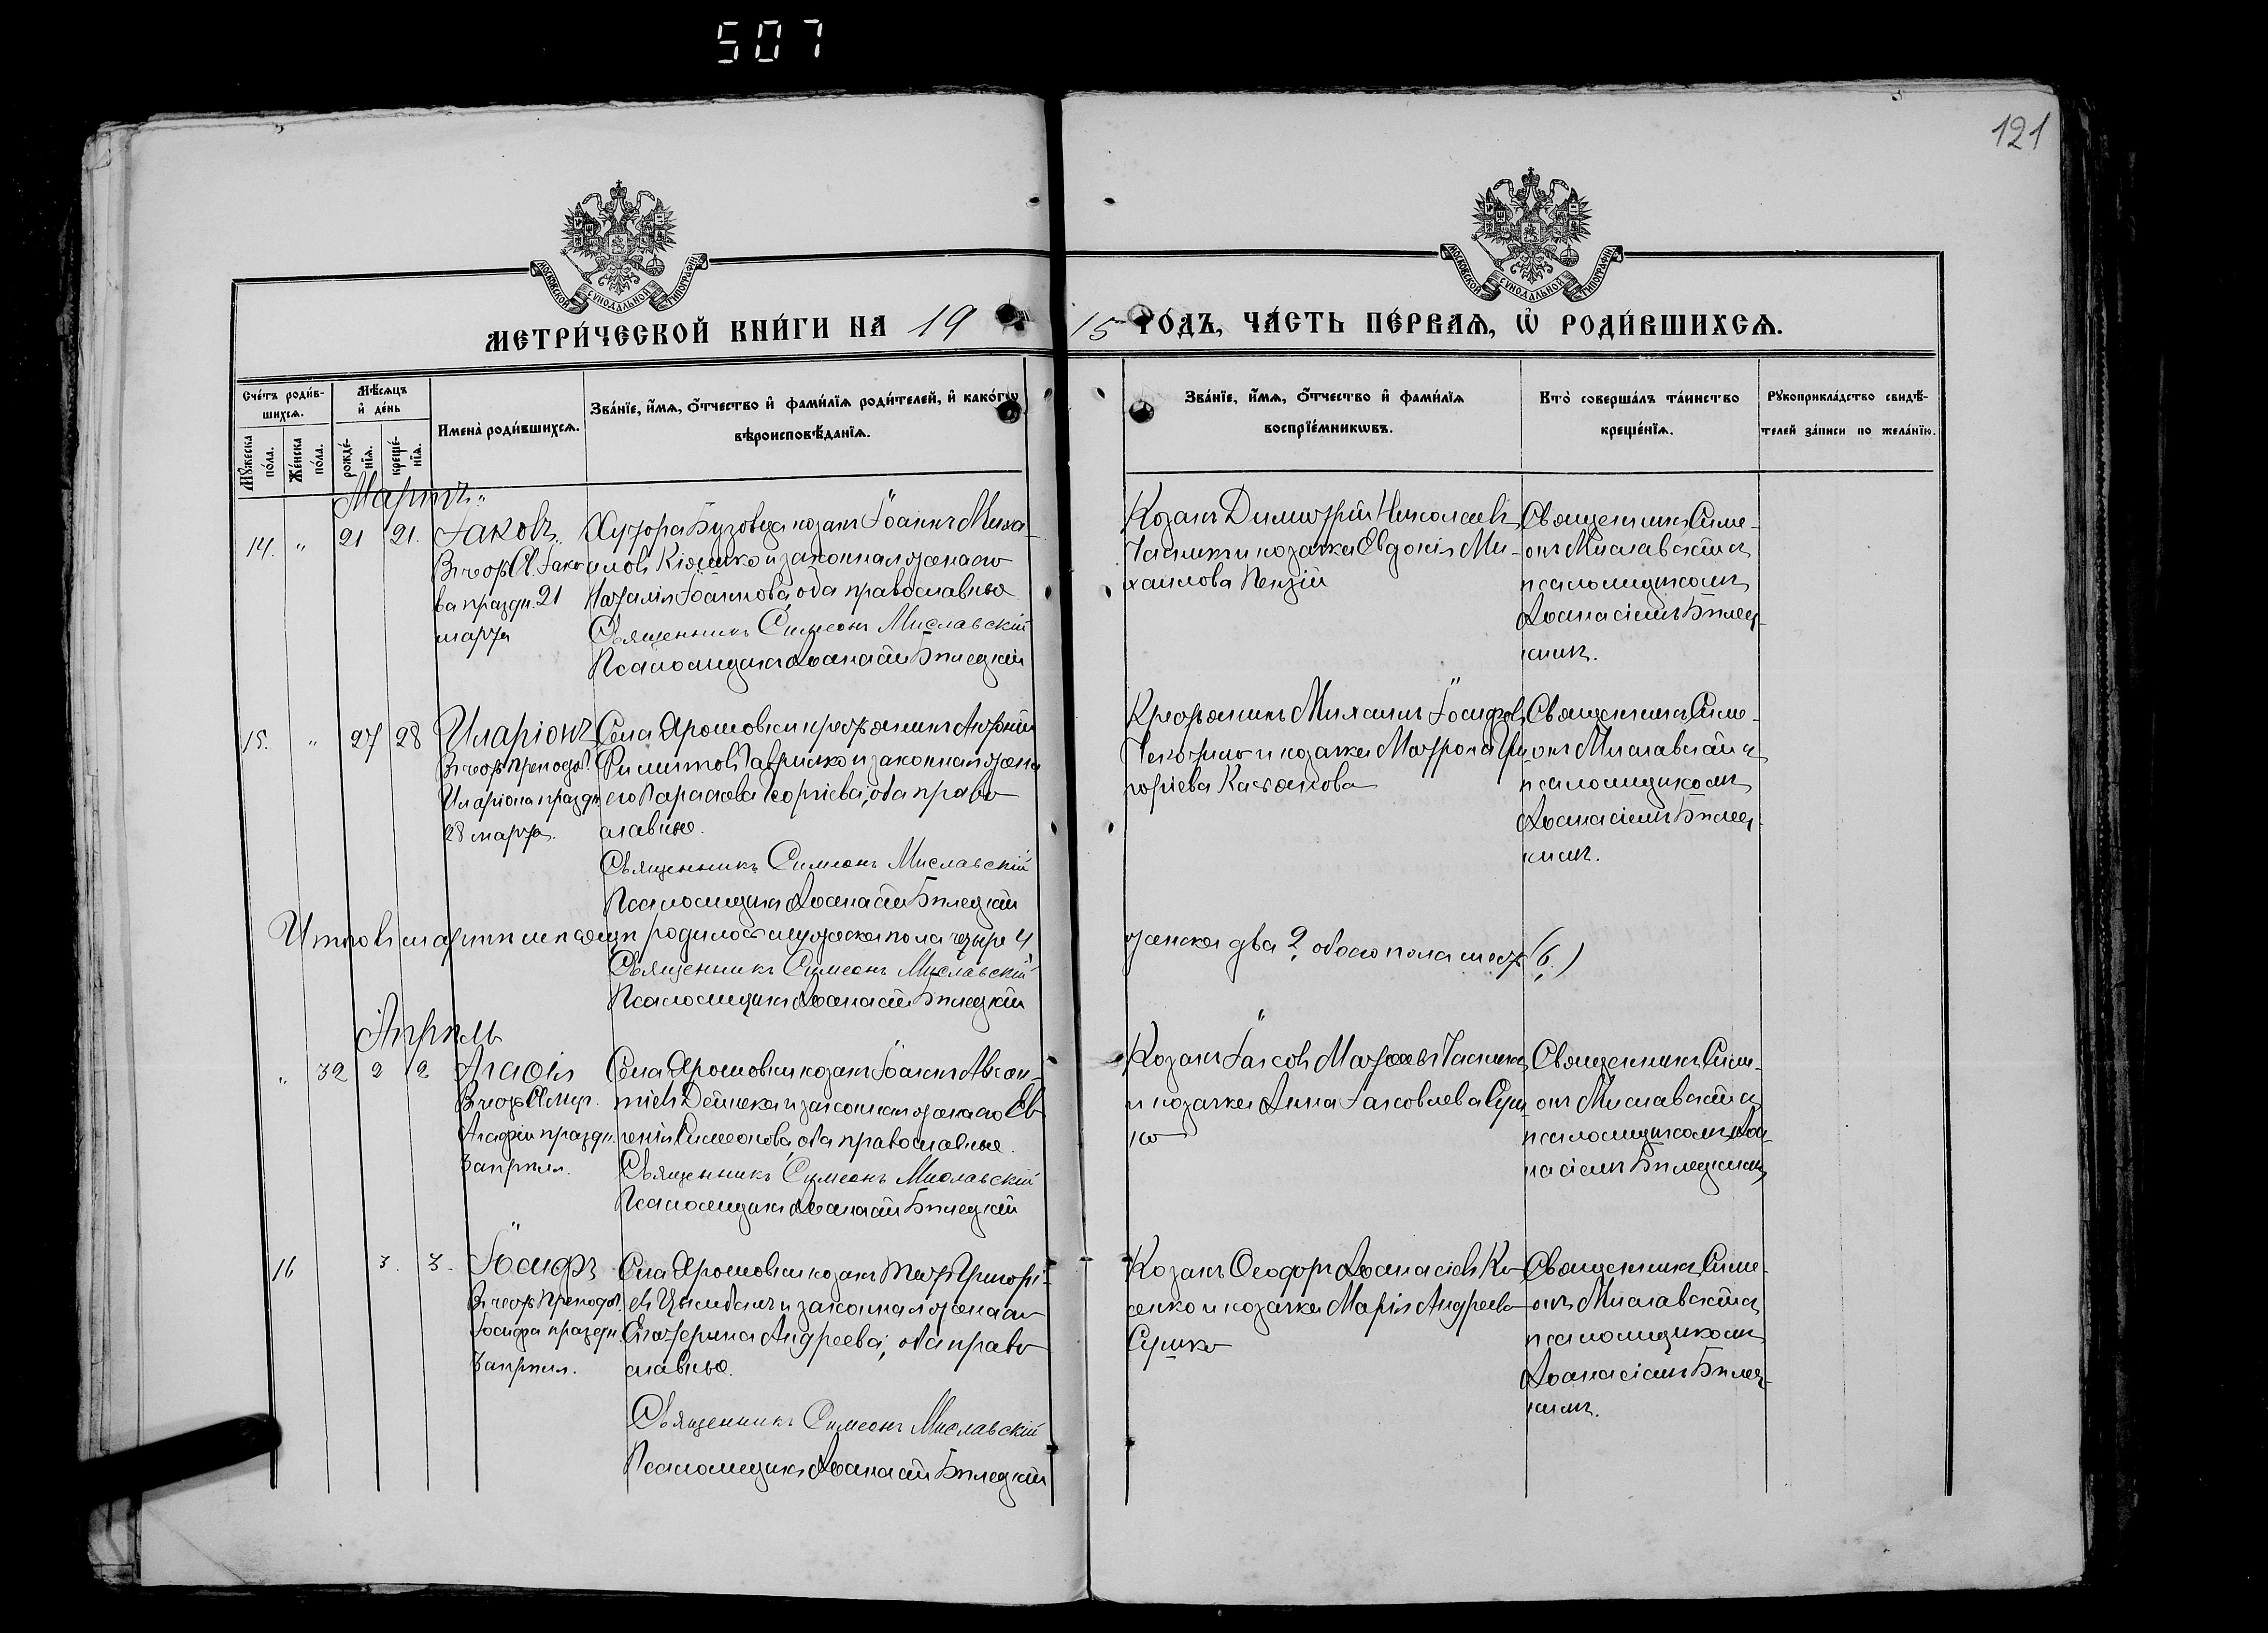 507
121
МОСКОВСКОЙ СУНОДАЛЬНОЙ ТИПОГРАФІИ
МОСКОВСКОЙ СУНОДАЛЬНОЙ ТИПОГРАФІИ
МЕТРИ́ЧЕСКОЙ КНИ́ГИ НА 19
15 ГО́ДЪ, ЧА́СТЬ ПЕ́РВАЯ, Ѡ҆ РОДИ́ВШИХСѦ.
Сче́тъ роди́в-
шихсѧ.
Мѣ́сѧцъ
и҆ де́нь
Мꙋ́жеска
по́ла.
Же́нска
по́ла.
рожде́-
нїѧ.
креще́-
нїѧ.
Имена̀ роди́вшихсѧ.
Зва́нїе, и҆́мѧ, ѻ҆́тчество и҆ фами́лїѧ роди́телей, и҆ како́гѡ
вѣроисповѣ́данїѧ.
Зва́нїе, и҆́мѧ, ѻ҆́тчество и҆ фами́лїѧ
воспрїе́мникѡвъ.
Кто̀ соверша́лъ та́инство
креще́нїѧ.
Рꙋкоприкла́дство свидѣ́-
телей за́писи по жела́нїю.
Мартъ.
14. " 21 21.
Іаковъ.
В честь Св. Іако
ва праздн. 21
марта
Хутора Бузовца козакъ Іоаннъ Миха-
иловъ и законная жена его
Наталія Іоаннова, оба православные
Священникъ Симеонъ Миславскій
Псаломщикъ Аѳанасій Билецкій
Козакъ Димитрій Николаевъ
и козачка Евдокія Ми-
хаилова
Священникъ Симе-
онъ Миславскій съ
псаломщикомъ
Аѳанасіемъ Билец-
кимъ.
15. " 27 28
Иларіонъ
В честь Преподоб.
Иларіона праздн
28 марта.
Села Ярошовки крестьянинъ Антоній
Филиповъ Гаврилко и законная жена
его Параскева Георгіева, оба право
славные.
Священникъ Симеонъ Миславскій
Псаломщикъ Аѳанасій Билецкій
Крестьянинъ Михаилъ Іосифовъ
и козачка Матрона Гри
горіева
Священникъ Симе-
онъ Миславскій съ
псаломщикомъ
Аѳанасіемъ Билец-
кимъ.
Итого въ мартѣ мѣсяцѣ родилось мужеска пола четыре 4
женска два 2, обоего пола шесть (6.)
Священникъ Симеонъ Миславскій
Псаломщикъ Аѳанасій Билецкій
Апрѣль
" 32 2 2
Агаѳія
В честь Св. Муч.
Агафіи праздн.
3 апрѣля.
Села Ярошовки козакъ Іоаннъ Авксен-
тіевъ Дейнека и законная жена его Ев
генія Симеонова, оба православные.
Священникъ Симеонъ Миславскій
Псаломщикъ Аѳанасій Билецкій
Козакъ Іаковъ
и козачка Анна Іаковлева Суш
ко
Священникъ Симе-
онъ Миславскій съ
псаломщикомъ Аѳа
насіемъ Билецкимъ
16 3. 3.
Іосифъ
В честь Преподоб.
Іосифа праздн.
3 апрѣля.
Села Ярошовки козакъ Григорі-
евъ и законная жена его
Екатерина Андреева, оба право
славные.
Священникъ Симеонъ Миславскій
Псаломщикъ Аѳанасій Билецкій
Козакъ Ѳеодоръ Аѳанасіевъ Ко
сенко и козачка Марія Андреева
Сушко
Священникъ Симе-
онъ Миславскій съ
псаломщикомъ
Аѳанасіемъ Билец-
кимъ.